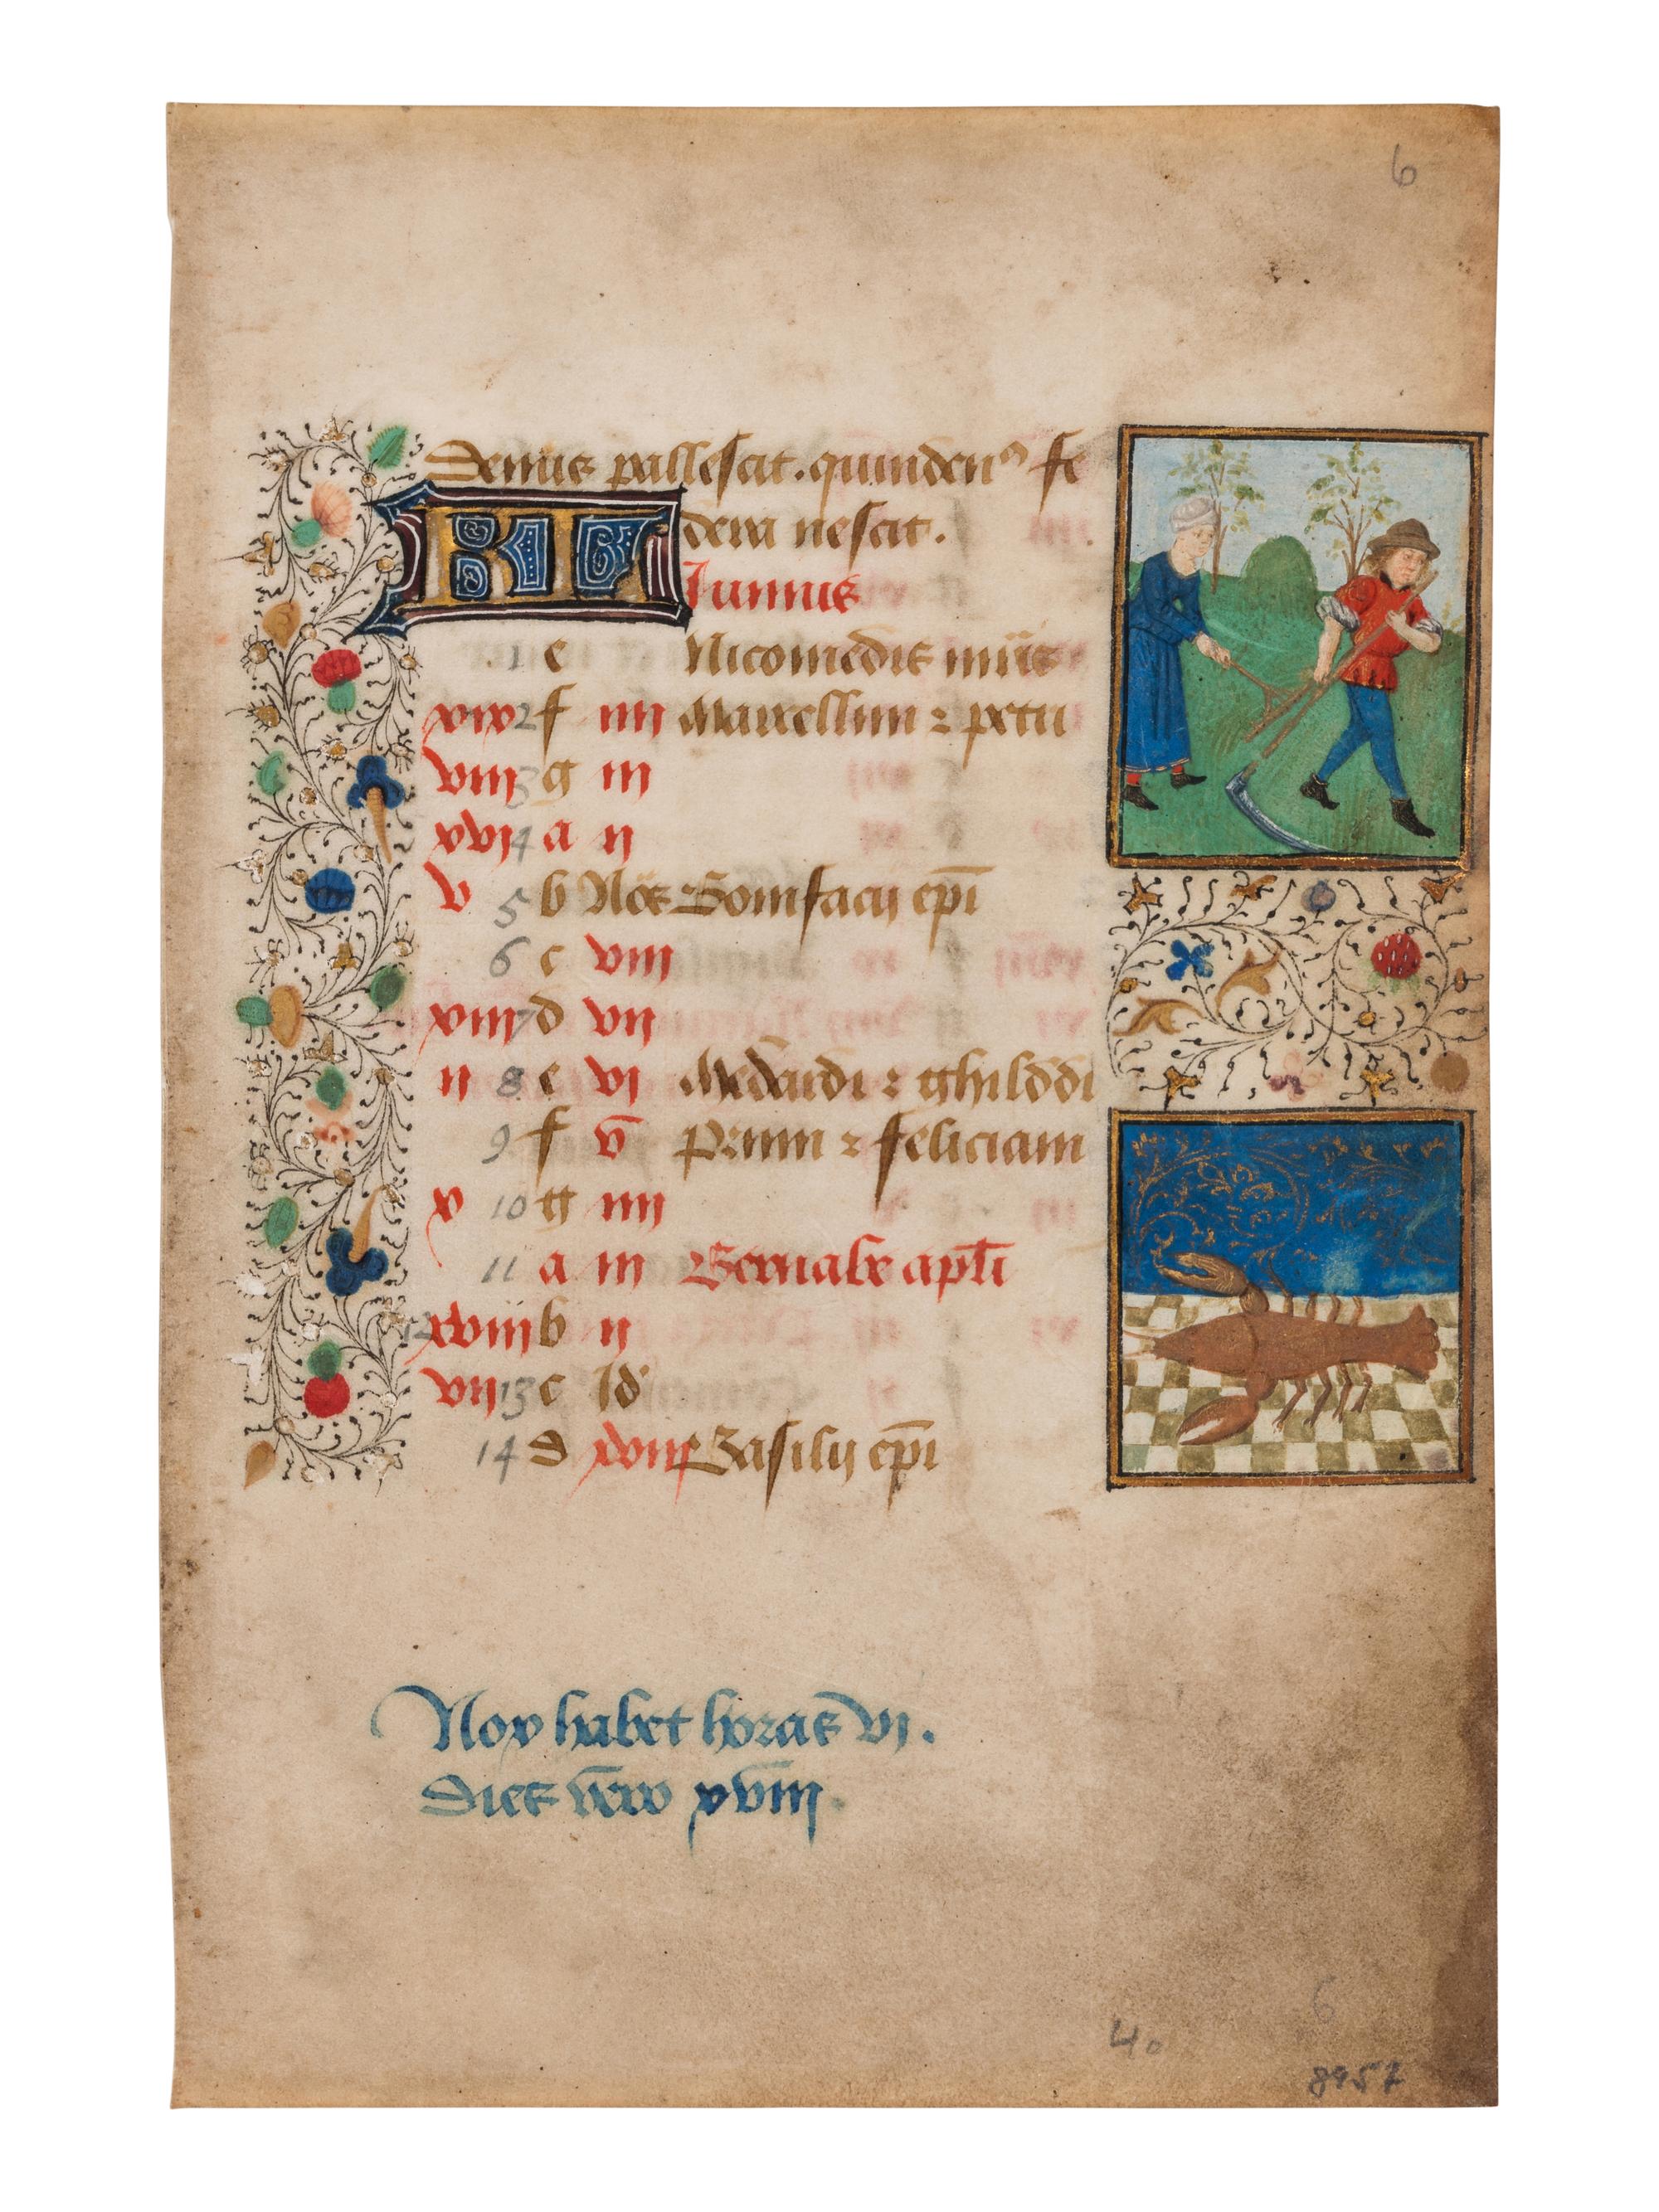 6
Denus pallescit. quindenꝰ fe
KL dera nescit.
Iunius
1 e Nicomedis mr̄is
xix 2 f iiii Marcellini ⁊ petri
viii 3 g iii
xvi 4 a ii
v 5 b Nōs Bonifacij ep̄i
6 c viii
xiii 7 d vii
ii 8 e vi Medardi ⁊ ghilddi
9 f v̄ Primi ⁊ feliciani
x 10 g iiii
11 a iii Bernabe apl̄i
12 xviii b ii
vii 13 c Id'
14 d xviii Basilij ep̄i
Nox habet horas vi.
Dies v̄ero xviii.
6
40
8957